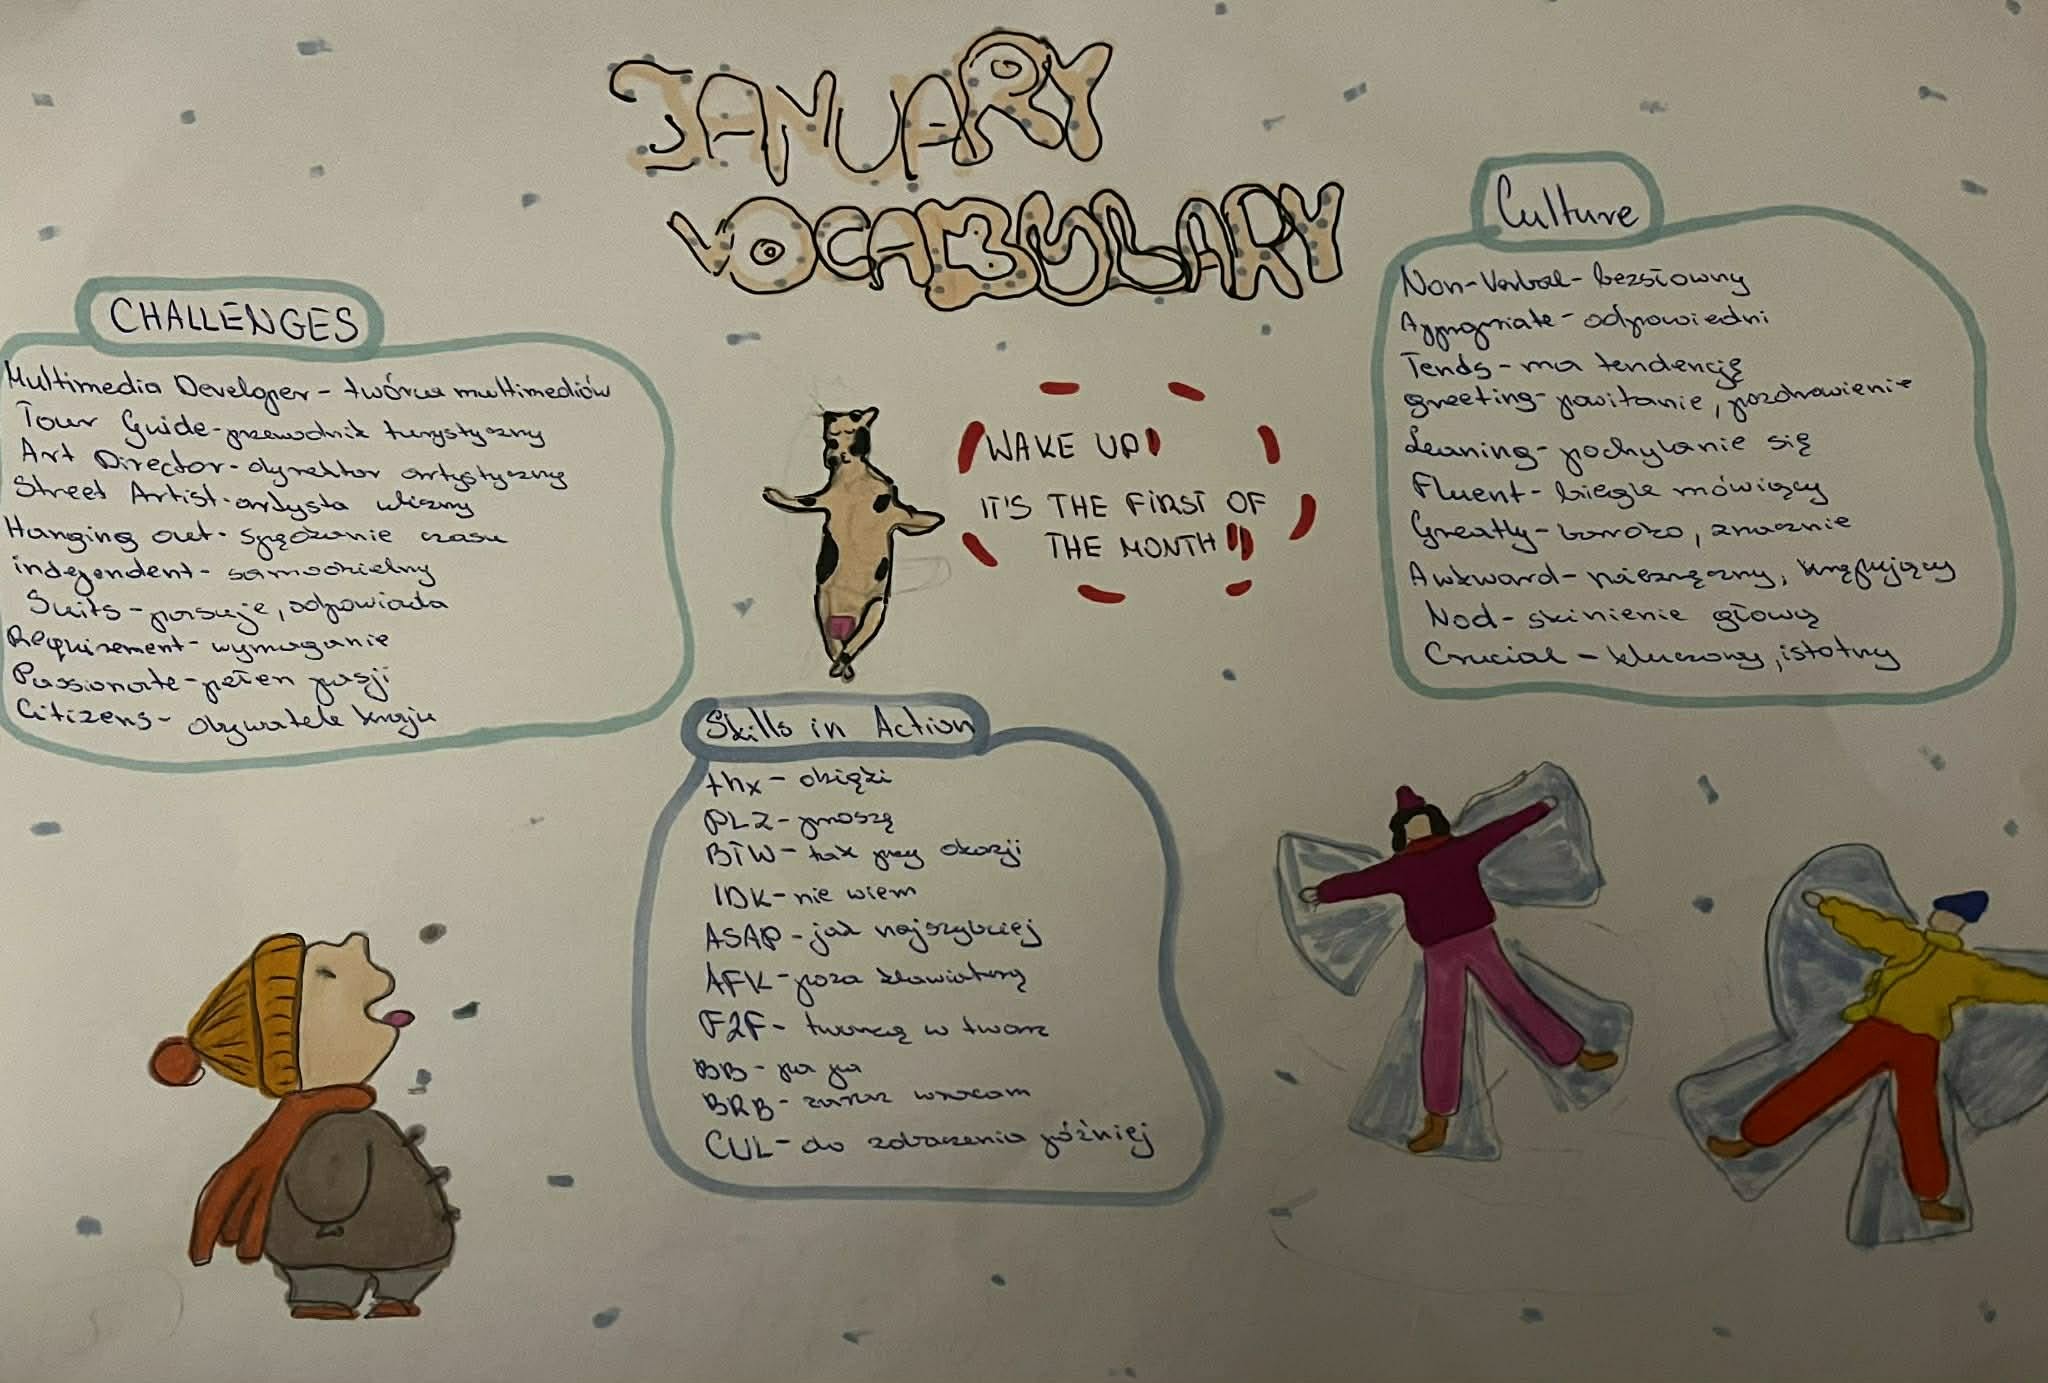 JANUARY
VOCABULARY
CHALLENGES
Multimedia Developer - twórca multimediów
Tour Guide - przewodnik turystyczny
Art Director - dyrektor artystyczny
Street Artist - artysta uliczny
Hanging out - spędzanie czasu
independent - samodzielny
Suits - pasuje, odpowiada
Requirement - wymaganie
Passionate - pełen pasji
Citizens - obywatele kraju
WAKE UP!
IT'S THE FIRST OF
THE MONTH!!
Culture
Non-Verbal - bezsłowny
Appropriate - odpowiedni
Tends - ma tendencję
greeting - powitanie, pozdrowienie
Leaning - pochylanie się
Fluent - biegle mówiący
Greatly - bardzo, znacznie
Awkward - niezręczny, krępujący
Nod - skinienie głową
Crucial - kluczowy, istotny
Skills in Action
thx - dzięki
PLZ - proszę
BTW - tak przy okazji
IDK - nie wiem
ASAP - jak najszybciej
AFK - poza klawiaturą
F2F - twarzą w twarz
BB - pa pa
BRB - zaraz wracam
CUL - do zobaczenia później